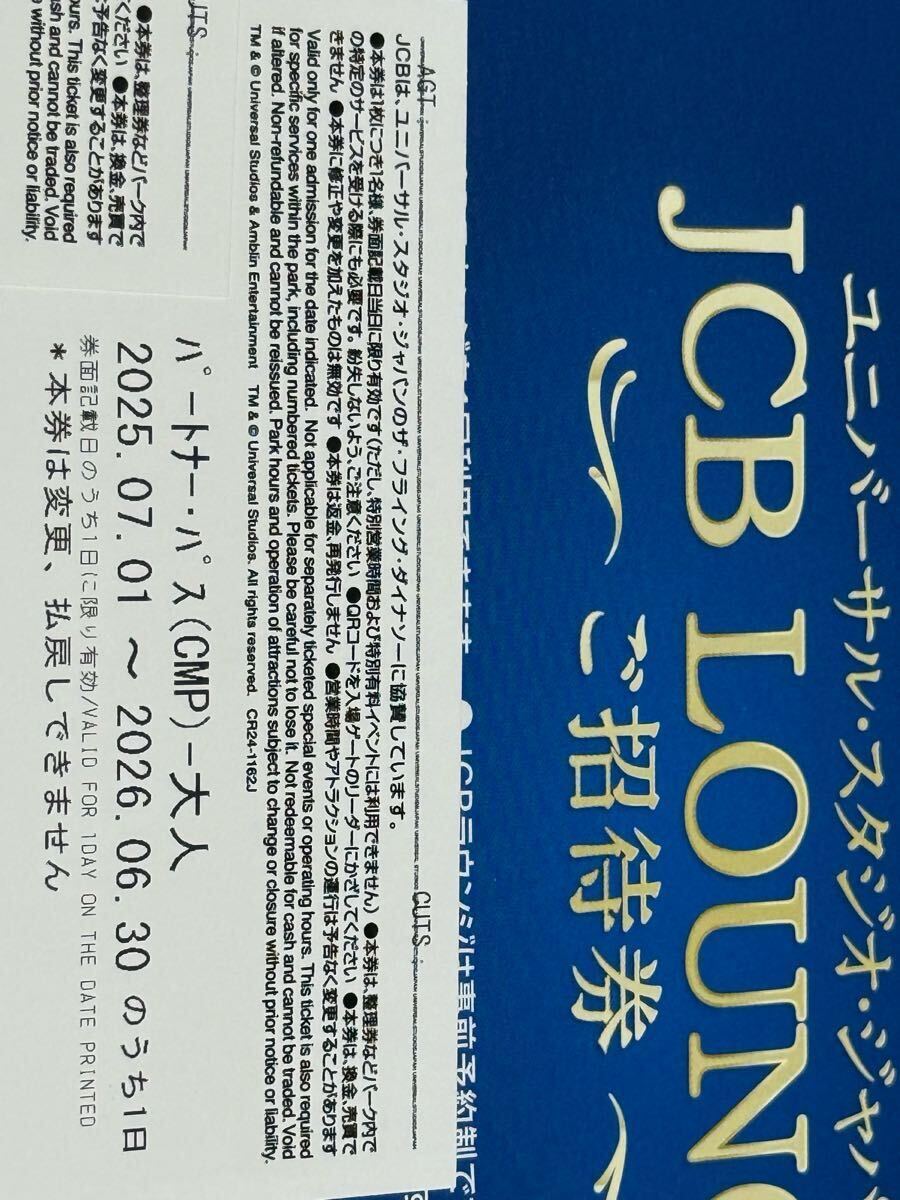 ユニバーサル・スタジオ・ジャパ
JCB LOUN
ご招待券
●JCBラウンジは事前予約制で
AGT CUTS
JCBは、ユニバーサル・スタジオ・ジャパンのザ・フライング・ダイナソーに協賛しています。
●本券は1枚につき1名様、券面記載日当日に限り有効です(ただし、特別営業時間および特別有料イベントには利用できません) ●本券は、整理券などパーク内で
の特定のサービスを受ける際にも必要です。紛失しないよう、ご注意ください ●QRコードを入場ゲートのリーダーにかざしてください ●本券は、換金、売買で
きません ●本券に修正や変更を加えたものは無効です ●本券は返金、再発行しません ●営業時間やアトラクションの運行は予告なく変更することがあります
Valid only for one admission for the date indicated. Not applicable for separately ticketed special events or operating hours. This ticket is also required
for specific services within the park, including numbered tickets. Please be careful not to lose it. Not redeemable for cash and cannot be traded. Void
if altered. Non-refundable and cannot be reissued. Park hours and operation of attractions subject to change or closure without prior notice or liability.
TM & © Universal Studios & Amblin Entertainment TM & © Universal Studios. All rights reserved. CR24-1162J
パートナー・パス(CMP)-大人
2025.07.01 〜 2026.06.30 のうち1日
券面記載日のうち1日に限り有効/VALID FOR 1DAY ON THE DATE PRINTED
*本券は変更、払戻しできません
UTS
●本券は、整理券などパーク内で
ください ●本券は、換金、売買で
は予告なく変更することがあります
ours. This ticket is also required
sh and cannot be traded. Void
without prior notice or liability.